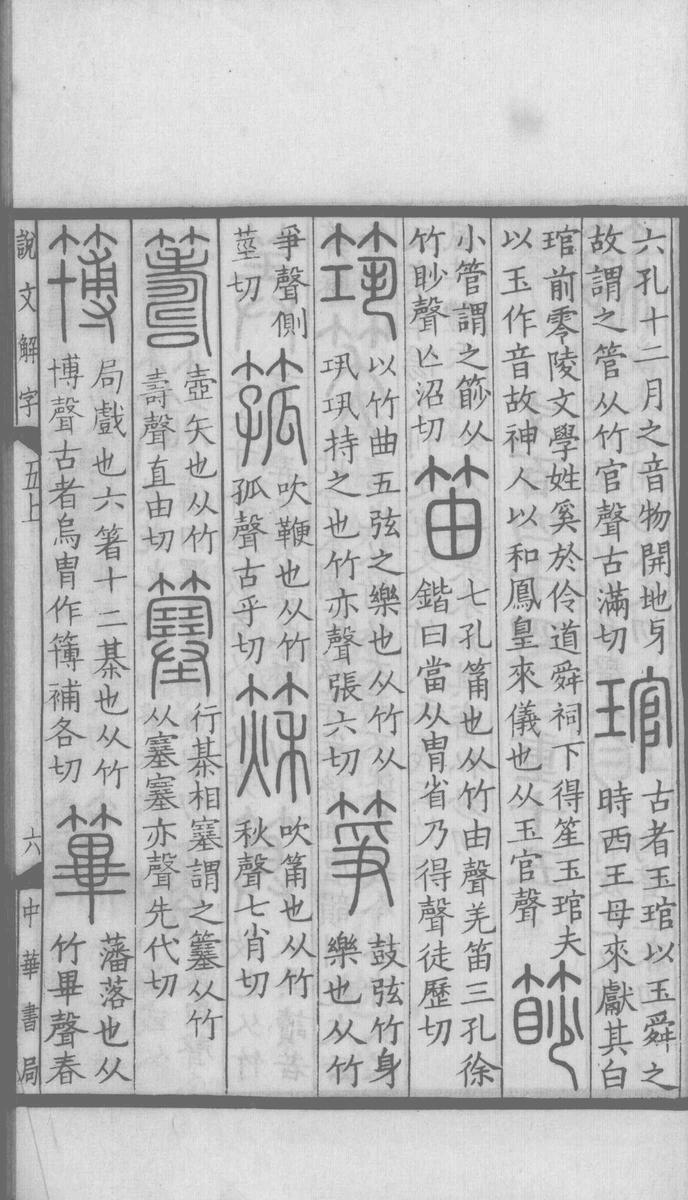 六孔十二月之音物開地牙
故謂之管从竹官聲古滿切
琯
古者玉琯以玉舜之
時西王母來獻其白
琯前零陵文學姓奚於伶道舜祠下得笙玉琯夫
以玉作音故神人以和鳳皇來儀也从玉官聲
篎
小管謂之篎从
竹眇聲亾沼切
笛
七孔筩也从竹由聲羌笛三孔徐
鍇曰當从胄省乃得聲徒歷切
筑
以竹曲五弦之樂也从竹从
巩巩持之也竹亦聲張六切
箏
鼓弦竹身
樂也从竹
爭聲側
莖切
箛
吹鞭也从竹
孤聲古乎切
篍
吹筩也从竹
秋聲七肖切
籌
壺矢也从竹
壽聲直由切
簺
行棊相塞謂之簺从竹
从塞塞亦聲先代切
簙
局戲也六箸十二棊也从竹
博聲古者烏胄作簙補各切
篳
藩落也从
竹畢聲春
說文解字 五上 六 中華書局